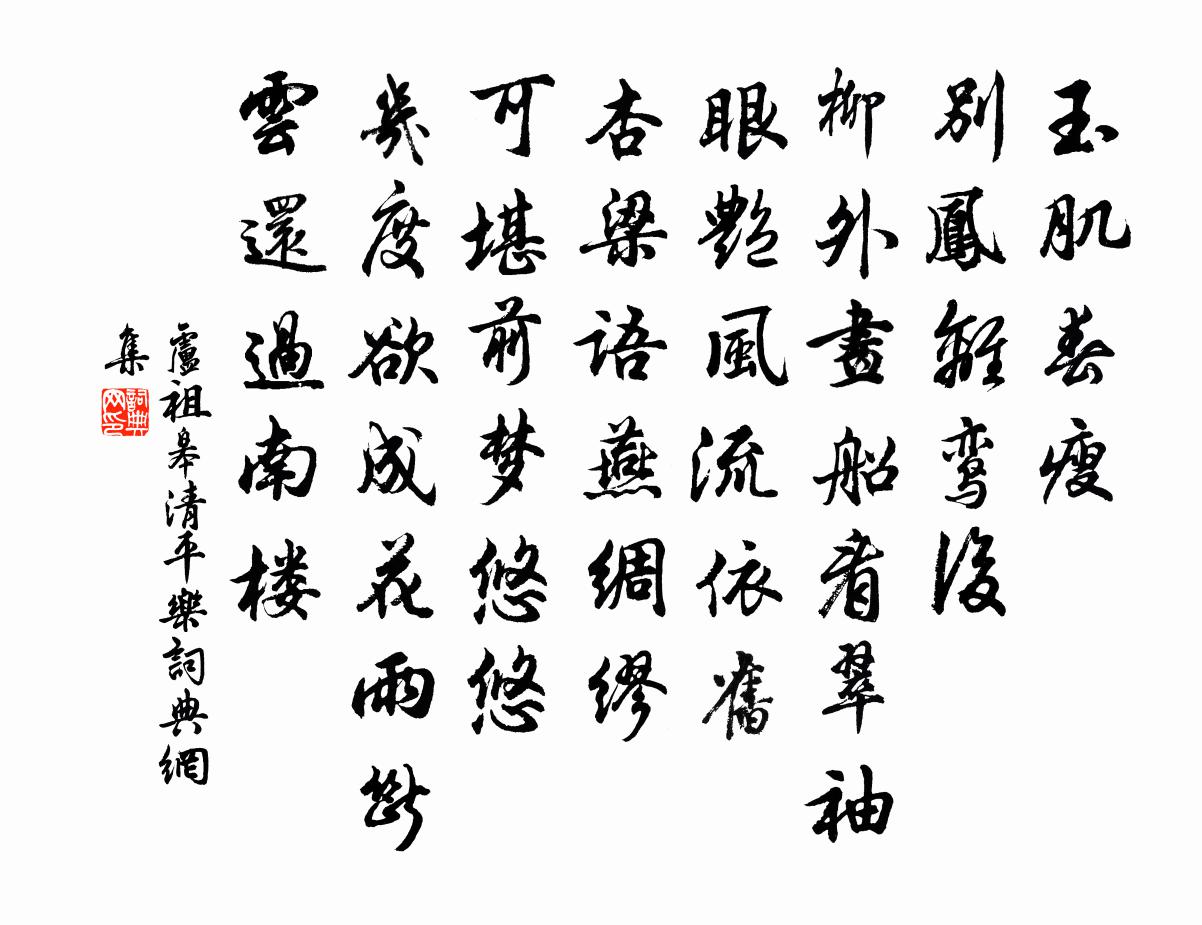 玉肌春瘦
別鳳離鸾後
柳外畫船看翠袖
眼艷風流依舊
杏梁語燕綢繆
可堪前梦悠悠
幾度欲成花雨斷
雲還過南楼
盧祖皋清平樂詞典網
集
詞典
网印